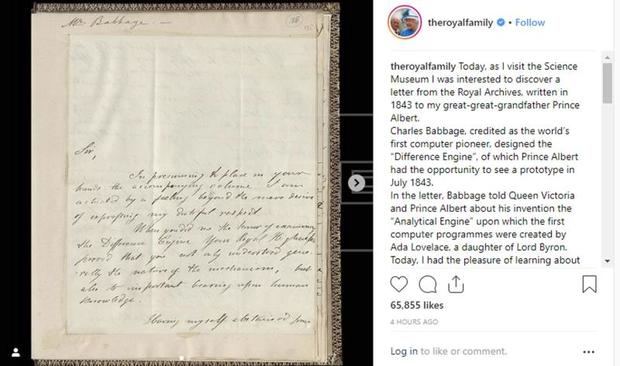 Mr Babbage. —
Sir,
In presuming to place in your
hands the accompanying volume I am
actuated by a feeling beyond the mere desire
of expressing my dutiful respect
When you did me the honor of examining
the Difference Engine Your Royal Highness
proved that you not only understood gene-
rally the nature of the mechanism, but
also its important bearing upon human
knowledge.
Having myself abstained from
theroyalfamily • Follow
theroyalfamily Today, as I visit the Science
Museum I was interested to discover a
letter from the Royal Archives, written in
1843 to my great-great-grandfather Prince
Albert.
Charles Babbage, credited as the world's
first computer pioneer, designed the
"Difference Engine", of which Prince Albert
had the opportunity to see a prototype in
July 1843.
In the letter, Babbage told Queen Victoria
and Prince Albert about his invention the
"Analytical Engine" upon which the first
computer programmes were created by
Ada Lovelace, a daughter of Lord Byron.
Today, I had the pleasure of learning about
65,855 likes
4 HOURS AGO
Log in to like or comment.